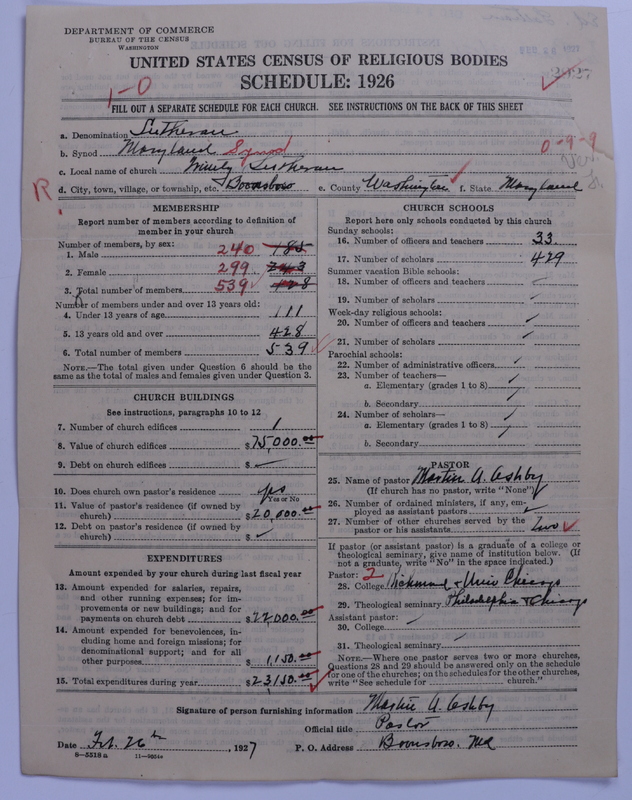 DEPARTMENT OF COMMERCE
BUREAU OF THE CENSUS
WASHINGTON
UNITED STATES CENSUS OF RELIGIOUS BODIES
SCHEDULE: 1926
1-0
FILL OUT A SEPARATE SCHEDULE FOR EACH CHURCH. SEE INSTRUCTIONS ON THE BACK OF THIS SHEET
a. Denomination Lutheran
b. Synod Maryland Synod 0-9-9
c. Local name of church Trinity Lutheran
R. d. City, town, village, or township, etc. Boonsboro e. County Washington f. State Maryland
MEMBERSHIP
Report number of members according to definition of
member in your church
Number of members, by sex:
1. Male 240 185
2. Female 299 243
3. Total number of members 539 428
Number of members under and over 13 years old:
4. Under 13 years of age 111
5. 13 years old and over 428
6. Total number of members 539
NOTE.—The total given under Question 6 should be
same as the total of males and females given under Question 3.
CHURCH BUILDINGS
See instructions, paragraphs 10 to 12
7. Number of church edifices 1
8. Value of church edifices $75,000.00
9. Debt on church edifices $
10. Does church own pastor's residence yes
Yes or No
11. Value of pastor's residence (if owned by
church) $20,000.00
12. Debt on pastor's residence (if owned by
church) $
EXPENDITURES
Amount expended by your church during last fiscal year
13. Amount expended for salaries, repairs,
and other running expenses; for im-
provements or new buildings; and for
payments on church debt $22,000.00
14. Amount expended for benevolences, in-
cluding home and foreign missions; for
denominational support; and for all
other purposes $1,150.00
15. Total expenditures during year $23150.00
CHURCH SCHOOLS
Report here only schools conducted by this church
Sunday schools:
16. Number of officers and teachers 33
17. Number of scholars 429
Summer vacation Bible schools:
18. Number of officers and teachers
19. Number of scholars
Week-day religious schools:
20. Number of officers and teachers
21. Number of scholars
Parochial schools:
22. Number of administrative officers
23. Number of teachers—
a. Elementary (grades 1 to 8)
b. Secondary
24. Number of scholars—
a. Elementary (grades 1 to 8)
b. Secondary
PASTOR
25. Name of pastor Martin A. Ashby
(If church has no pastor, write "None")
26. Number of ordained ministers, if any, em-
ployed as assistant pastors
27. Number of other churches served by the
pastor or his assistants Two
If pastor (or assistant pastor) is a graduate of a college or
theological seminary, give name of institution below. (If
not a graduate, write "No" in the space indicated.)
Pastor: 2
28. College Richmond & Univ Chicago
29. Theological seminary Philadelphia & Chicago
Assistant pastor:
30. College
31. Theological seminary
NOTE.—Where one pastor serves two or more churches,
Questions 28 and 29 should be answered only on the schedule
for one of the churches; on the schedules for the other churches,
write "See schedule for church."
Signature of person furnishing information Martin A. Ashby
Official title Pastor
Date Feb. 26th, 1927 P. O. Address Boonsboro. Md
8-5518a 11-9654a